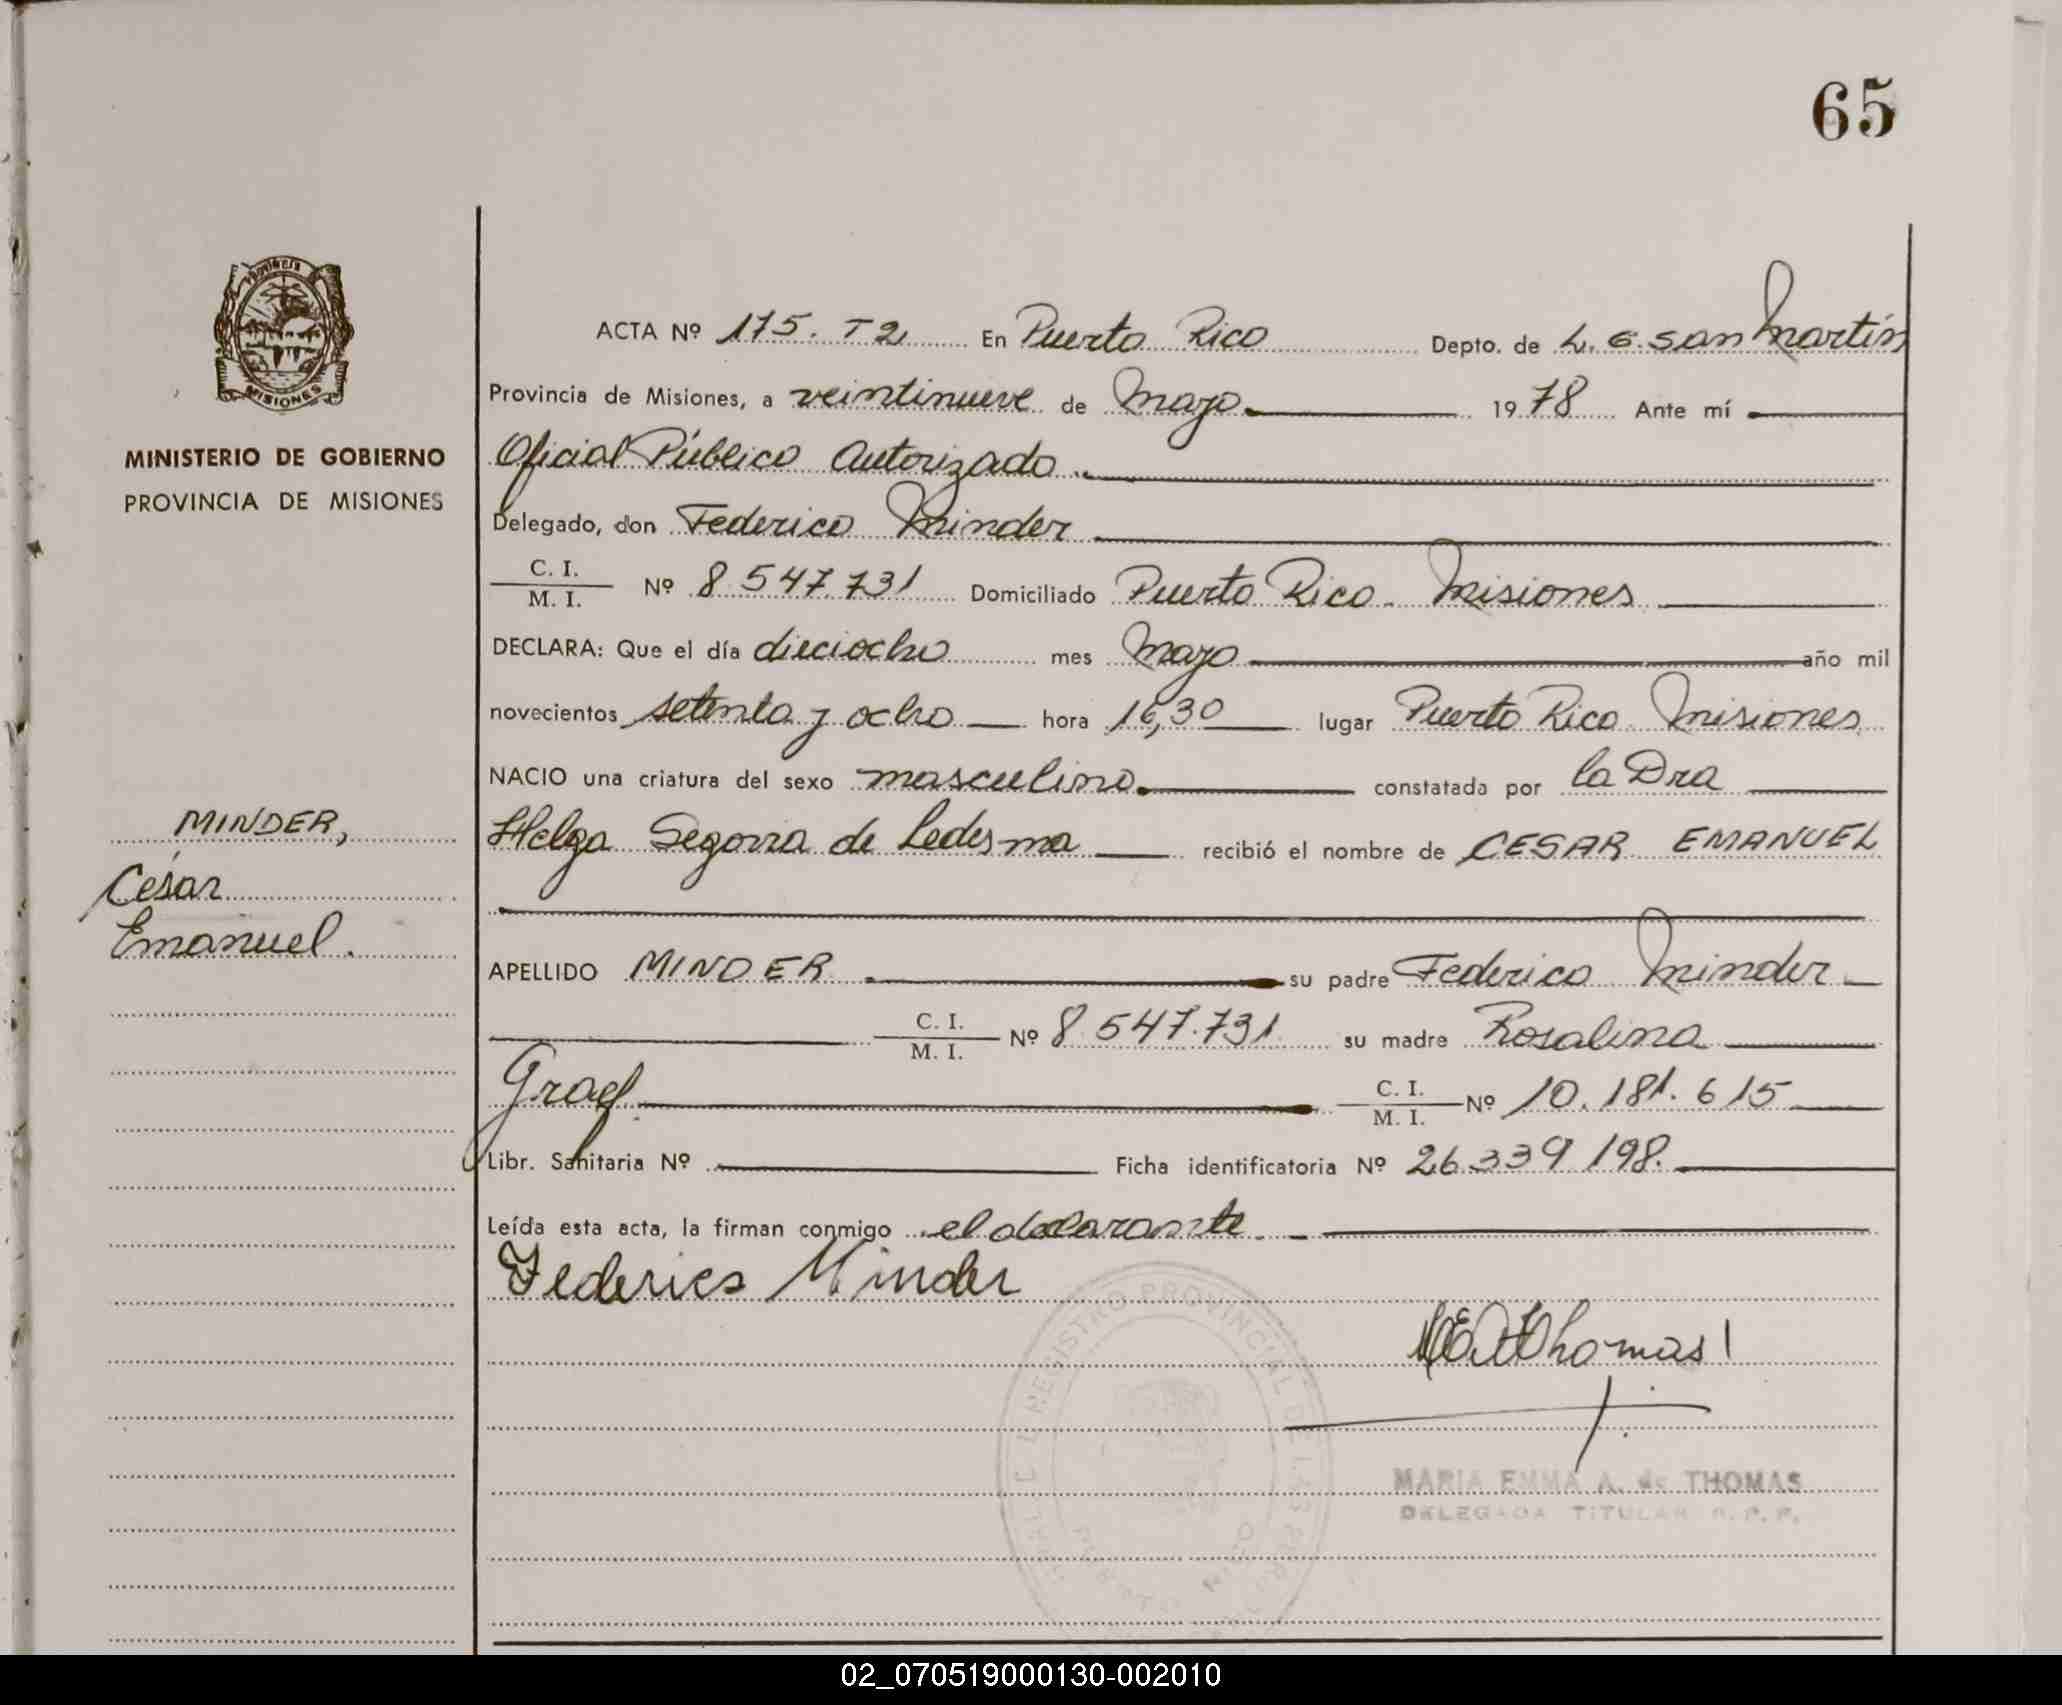 65
PROVINCIA
MISIONES
MINISTERIO DE GOBIERNO
PROVINCIA DE MISIONES
MINDER,
César
Emanuel.
ACTA Nº 175. T2 En Puerto Rico Depto. de L. G. San Martín
Provincia de Misiones, a veintinueve de Mayo 1978 Ante mí
Oficial Público Autorizado
Delegado, don Federico Minder
C. I.
M. I. Nº 8.547.731 Domiciliado Puerto Rico. Misiones
DECLARA: Que el día dieciocho mes Mayo año mil
novecientos setenta y ocho hora 16,30 lugar Puerto Rico Misiones
NACIO una criatura del sexo masculino. constatada por la Dra
Helga Segovia de Ledesma recibió el nombre de CESAR EMANUEL
APELLIDO MINDER su padre Federico Minder
C. I.
M. I. Nº 8.547.731 su madre Rosalina
Graef C. I.
M. I. Nº 10.181.615
Libr. Sanitaria Nº Ficha identificatoria Nº 26.339.198.
Leída esta acta, la firman conmigo el declarante
Federico Minder
Thomas
MARIA EMMA A. de THOMAS
DELEGADA TITULAR R. P. P.
REGISTRO PROVINCIAL DE LAS PERSONAS
PUERTO RICO
02_070519000130-002010